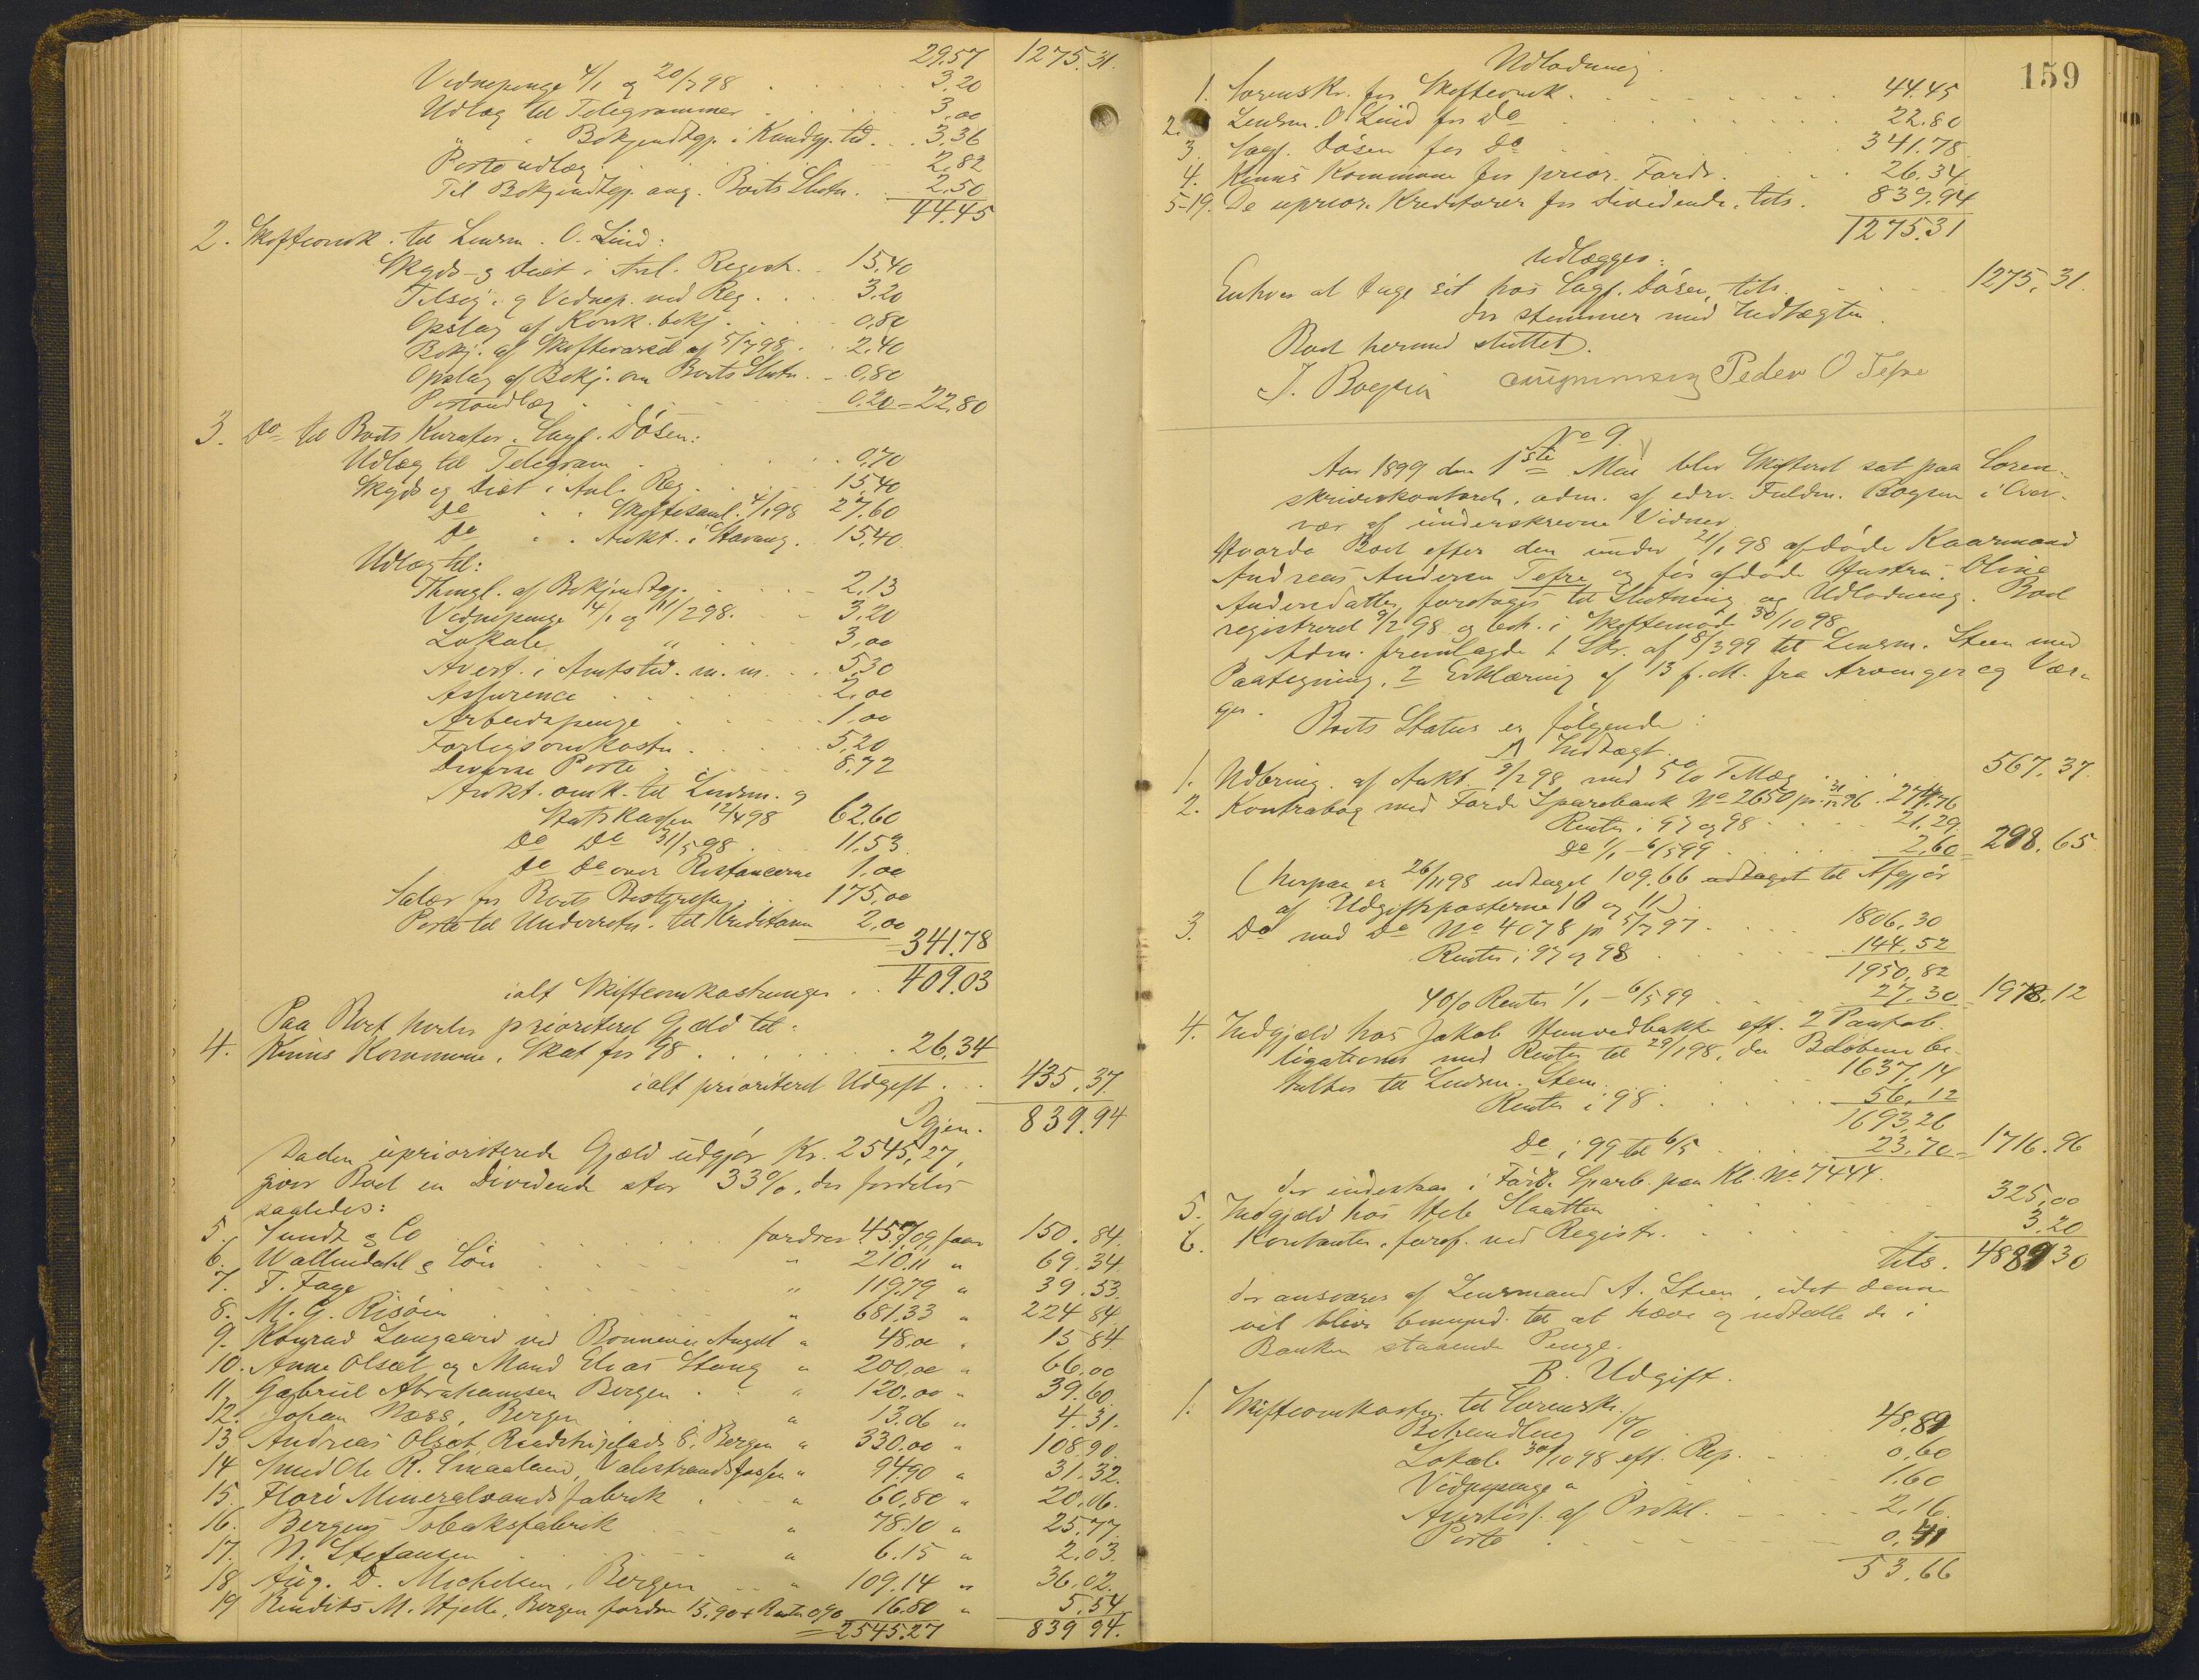 29.57 1275.31.
Vidnepenge 4/1 og 20/7 98 . . . . . 3.20
Udlæg til Telegrammer . . . . 3,00
" " Bekjendtgj. i Kundgj. tid. . . 3,36
Porto udlæg . . . . . 2,82
Til Bekjendtgj. ang. Boets Slutn. . 2,50
44.45
2. Skifteomk. til Lensm. O. Lind:
Skyds- og Diæt i Anl. Registr. . 15,40
Tilsig. og Vidnep. ved Reg. . . . 3,20
Opslag af Konk. bekj. . . . 0,80
Bekj. af Skiftevarsel af 5/7 98 . . 2,40
Opslag af Bekj. om Boets Slutn. . . 0,80
Portoudlæg . . . . . 0,20 = 22,80
3. Do til Boets Kurator, Sagf. Døsen:
Udlæg til Telegram . . . . 0,70
Skyds og Diæt i Anl. Reg . . . 15,40
Do . . Skiftesaml. 4/1 98 27,60
Do . . Aukt. i Stavang . 15,40
Udlæg til:
Thingl. af Bekjendtgj. . . . . 2,13
Vidnepenge 4/1 og 11/2 98. . . 3,20
Lokale " . . . 3,00
Avert. i Amtstid. m. m. . . 5.30
Assurence . . . . . 2,00
Arbeidspenge . . . . 1,00
Forligsomkostn. . . . . 5,20
Diverse Porto . . . . . 8,72
Aukt. omk. til Lensm. og
Statskassen 12/4 98 62.60
Do Do 31/5 98 . . . 11.53
Do Do over Restancerne 1,00
Salær for Boets Bestyrelse . . 175,00
Porto til Underretn. til Kreditorer 2,00
= 341.78
ialt Skifteomkostninger . . 409.03
Paa Boet hviler prioriteret Gjæld til:
4. Kinns Kommune, Skat for 98 . . . . . . . 26.34
ialt prioriteret Udgift . . . 435.37.
Igjen. 839.94
Da den uprioriterede Gjæld udgjør Kr. 2545,27,
giver Boet en Dividende stor 33%, der fordeles
saaledes:
5. Sundt & Co . . . . . . fordrer 457,09, faar 150.84.
6. Wallendahl & Søn . . . . " 210.11 " 69.34.
7. F. Fage . . . . . . " 119.79 " 39.53.
8. M. G. Risøen . . . . . " 681.33 " 224.84.
9. Konrad Langaard ved Bonnevie Angell " 48,00 " 15 84.
10. Anne Olset og Mand Elias Stang " 200,00 " 66.00
11. Gabriel Abrahamsen Bergen . . " 120.00 " 39.60.
12. Johan Næss, Bergen . . . " 13.06 " 4.31.
13. Andreas Olset, Raadstuplads 8, Bergen " 330.00 " 108.90.
14 Smed Ole R. Smaaland, Valestrandsfossen " 94.90 " 31.32.
15. Florø Mineralvandsfabrik . . . " 60,80 " 20.06.
16. Bergens Tobaksfabrik . . . " 78.10 " 25.77.
17. N. Stefansen . . . . " 6.15 " 2.03.
18. Aug. D. Michelsen, Bergen . . " 109.14 " 36.02.
19 Bendiks M. Hjelle, Bergen fordrer 15,90 + Renter 0,90 16.80 " 5.54
= 2545.27 839 94.
159
Udlodning.
1. Sorenskr. for Skifteomk. . . . . . . . 44.45
2. Lensm. O. Lind for Do . . . . . . . 22.80
3. Sagf. Døsen for Do . . . . . . 341.78
4. Kinns Kommune for prior. Fordr. . . . 26,34
5-19. De uprior. Kreditorer for Dividende, tils. 839.94
1275.31
Udlægges:
Enhver at tage sit hos Sagf. Døsen, tils. . . . . 1275,31.
der stemmer med Indtægten.
Boet hermed sluttet.
J. Bøgsen Peder O Tefre
No 9.
Aar 1899 den 1ste Mai blev Skifteret sat paa Soren-
skriverkontoret, adm. af edsv. Fuldm. Bøgsen i Over-
vær af underskrevne Vidner.
Hvorda Boet efter den under 21/1 98 afdøde Kaarmand
Andreas Andersen Tefre og før afdøde Hustru Oline
Andersdatter foretages til Slutning og Udlodning. Boet
registreret 9/2 98 og beh. i Skiftemøde 30/10 98
Adm. fremlagde 1 Skr. af 8/3 99 til Lensm. Steen med
Paategning, 2 Erklæring af 13 f. M. fra Arvinger og Vær-
ger.
Boets Status er følgende:
A Indtægt.
1. Udbring. af Aukt. 9/2 98 med 5% Tillæg . . . 567.37.
2. Kontrabog med Førde Sparebank No 2650 pr. 31/12 96 . 274.76
Renter i 97 og 98 . . . . 21.29
Do 1/1 - 6/5 99 . . . . 2,60 = 298.65
(herpaa er 26/11 98 udtaget 109.66 udtaget til Afgjør
af Udgiftsposterne 10 og 11).
3. Do med Do No 4078 pr 5/7 97 . . . . 1806,30
Renter i 97 og 98 . . . . 144,52
1950,82
4% Renter 1/1 - 6/5 99 . . . . 27.30 = 1978.12
4. Indgjæld hos Jakob Hunvedbakke eft. 2 Pantob-
ligationer med Renter til 29/1 98, der Beløbene be-
taltes til Lensm. Steen . . . 1637,14
Renter i 98 . . . . . 56,12
1693,26
Do i 99 til 6/5 . . . . 23,70 = 1716.96
der indestaar i Førde Sparb. paa Kb. No 7444.
5. Indgjæld hos Hele Slaatten . . . . . . 325,00
6. Kontanter, foref. ved Registr. . . . . . . 3.20
tils. 4889 30
der ansvares af Lensmand A. Steen, idet denne
vil blive bemynd. til at hæve og udtælle de i
Banken staaende Penge.
B. Udgift.
1. Skifteomkostn. til Sorenskr.
Behandling % . . . 48.89
Lokale 30/10 98 eft. Rep. . . . 0,60
Vidnepenge " . . . 1.60
Avertisf. af Prokl. . . . . . 2,16.
Porto . . . . . . . 0,41
53.66